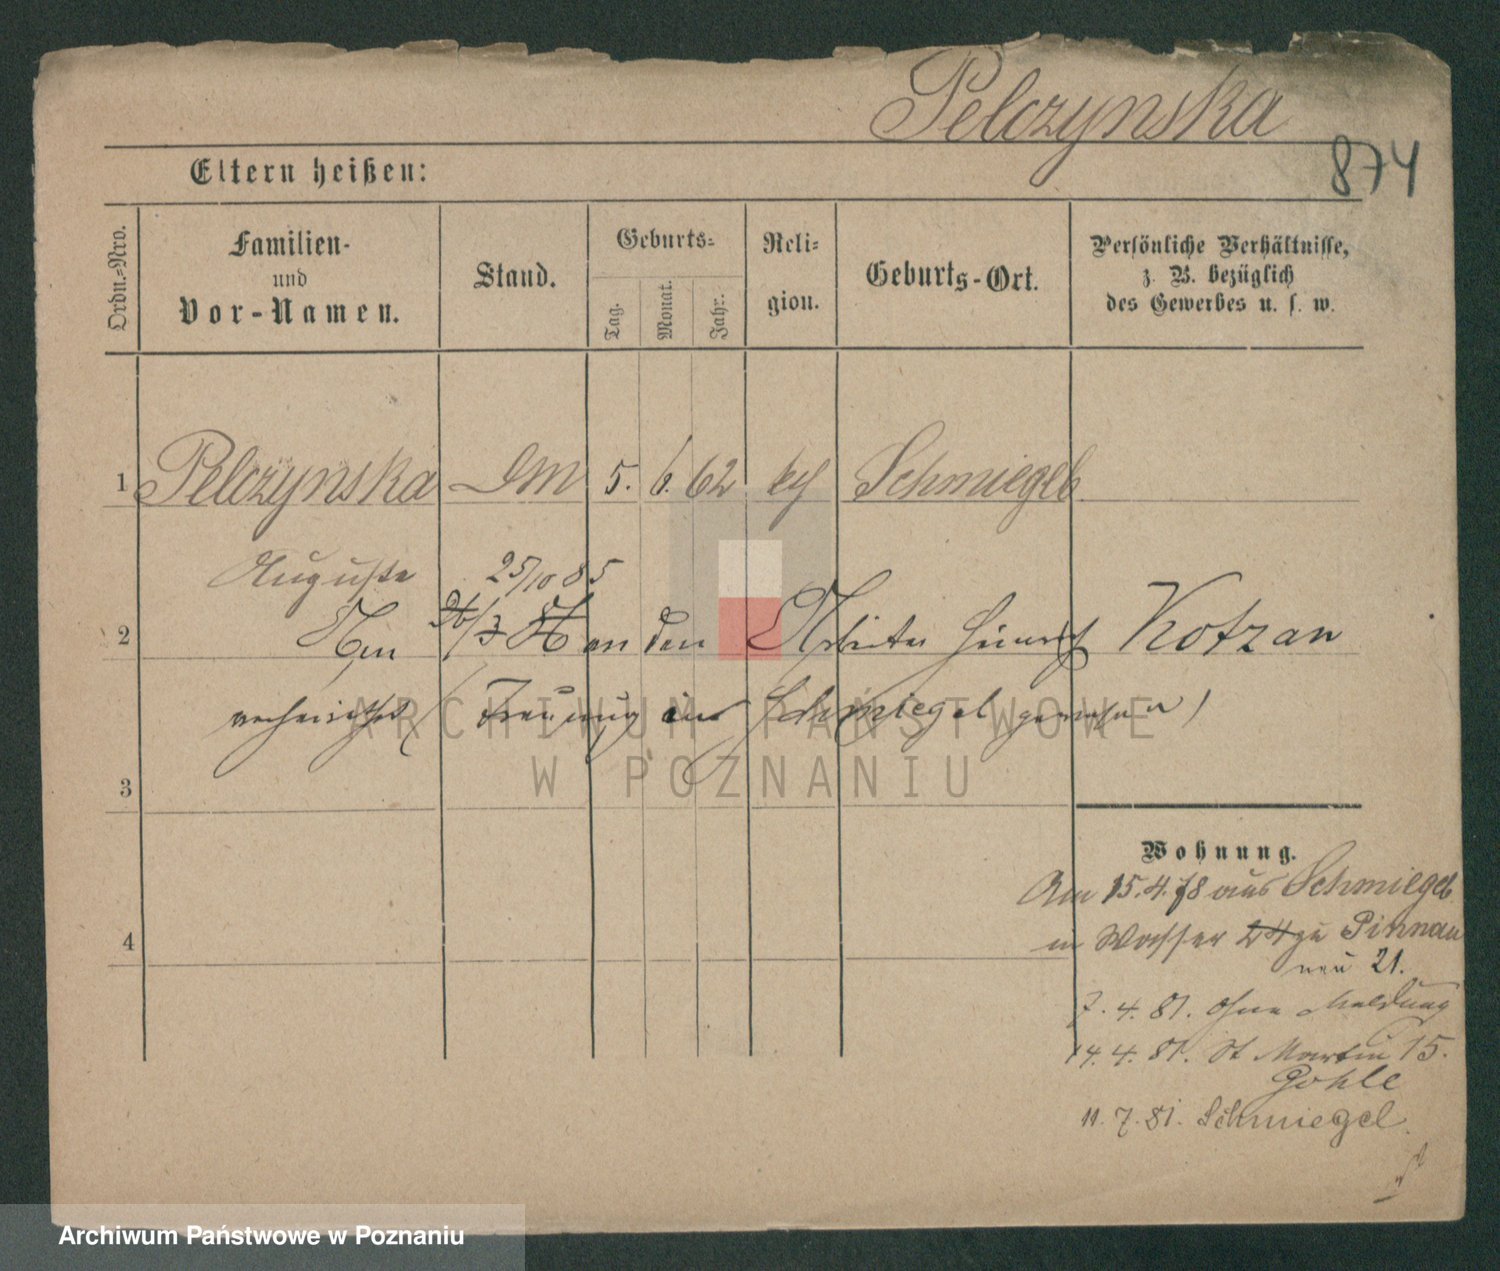 Pelczynska
874
Eltern heißen:
Ordn.-Nro.
Familien-
und
Vor-Namen.
Stand.
Geburts-
Tag.
Monat.
Jahr.
Reli-
gion.
Geburts-Ort.
Persönliche Verhältnisse,
z. B. bezüglich
des Gewerbes u. s. w.
1 Pelczynska DM 5. 6. 62 kth Schmiegel
Auguste 25/10 85
2 an den Arbeiter Heinrich Kotzan
verheirathet (Trauung in Schmiegel gewesen)
ARCHIWUM PAŃSTWOWE
W POZNANIU
3
Wohnung.
Am 15.4.78 aus Schmiegel
in Wasser 24 zu Pinnau
neu 21.
4
7. 4. 81. ohne Meldung
14. 4. 81. St Martin 15.
Gohle
11. 7. 81. Schmiegel.
Archiwum Państwowe w Poznaniu